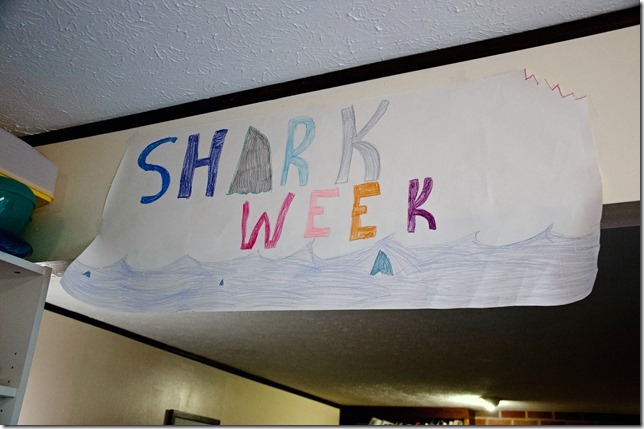 SHARK
WEEK